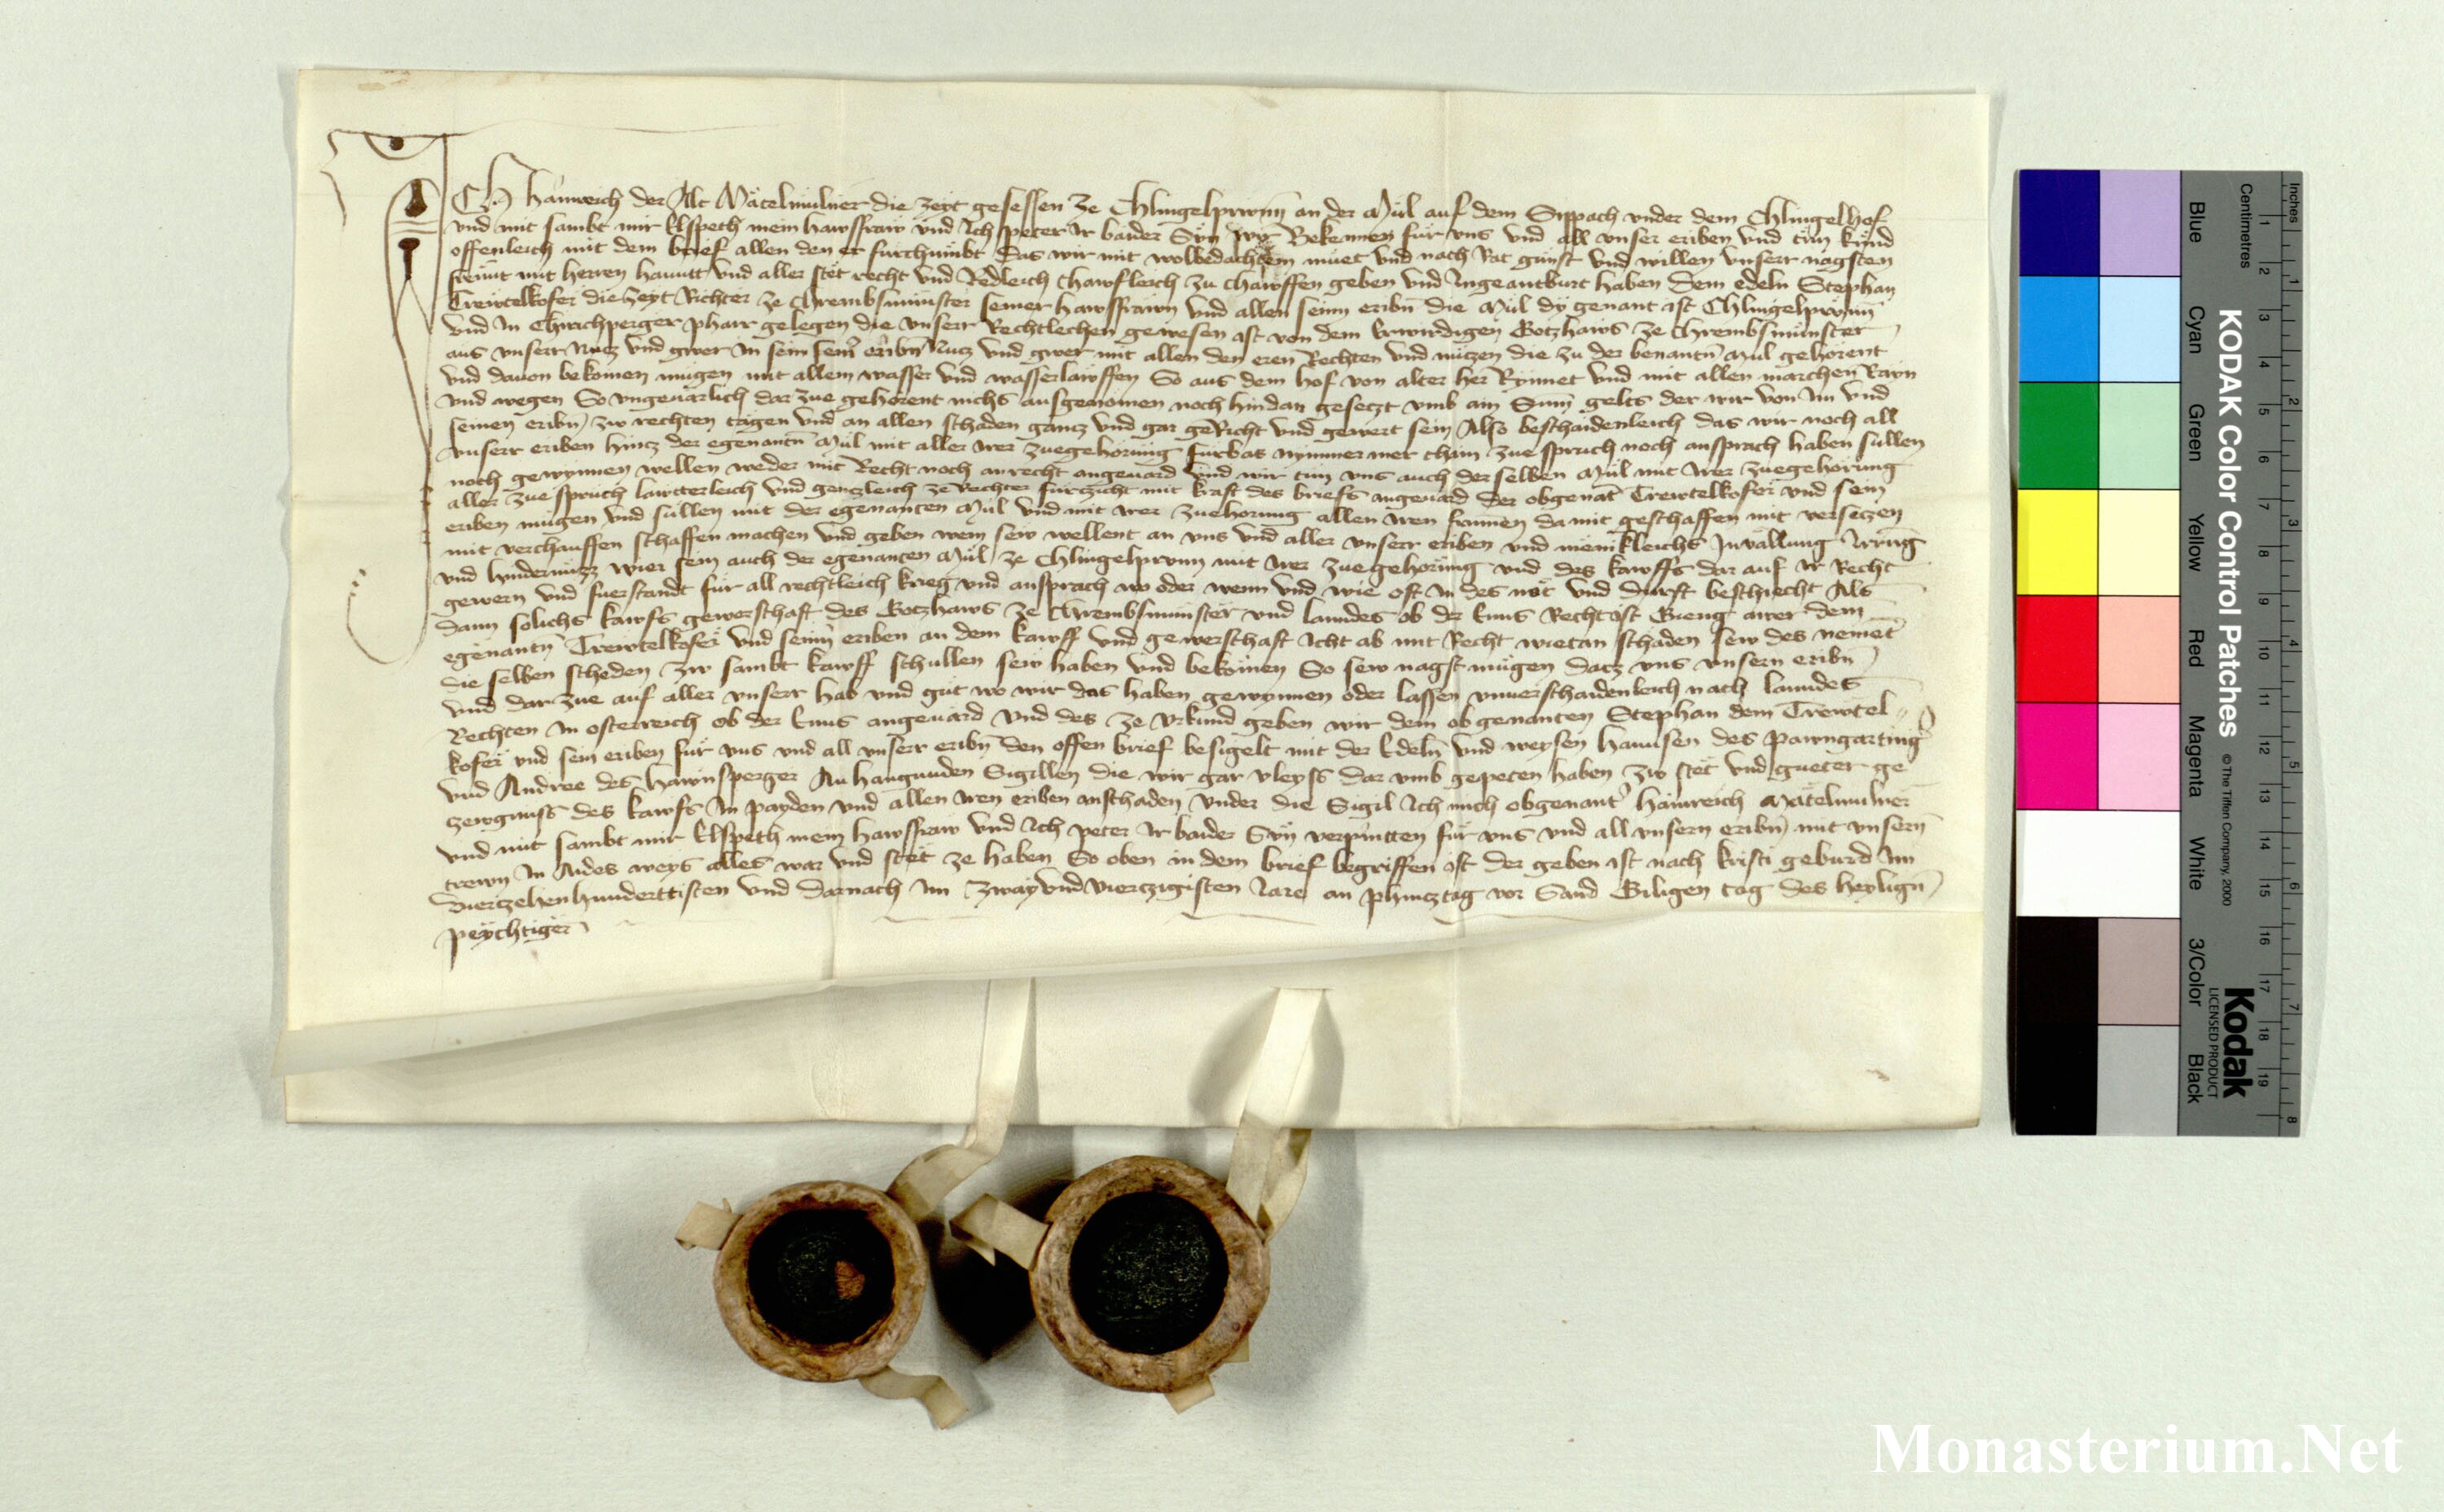 Ich Hainreich der Alt Mätelmülner die zeyt gesessen ze Chlingelprunn an der Mül auf dem Sippach vnder dem Chlingelhof
vnd mit sambt mir Elspeth mein hawsfraw vnd Ich peter Ir baider Sün Wyr Bekennen für vns vnd all vnser eriben vnd tün künd
offenleich mit dem brief allen den er fürchumbt Das wir mit wolbedachtem müet vnd nach Rat günst vnd willen vnserr nagsten
freünt mit herren hannt vnd aller stët recht vnd Redleich chawfleich zu chawffen geben vnd Ingeantburt haben dem edeln Stephan
Trewtelkofer die zeyt Richter ze Chrembsmünster seiner hawsfrawn vnd allen seinn eribn die Mül dy genant ist Chlingelprunn
vnd in Chirichperger pharr gelegen die vnserr Rechtlechen gewesen ist von dem Erwirdigen Gotzhaws ze Chrembsmünster
aus vnserr Nutz vnd gwer in sein seiner eribn Nucz vnd gwer mit allen den eren Rechten vnd nützen die zu der benantn Mül gehörent
vnd dauon bekomen mügen mit allem wasser vnd wasserlawffen So aus dem hof von alter her Rynnet vnd mit allen märchen Rayn
vnd wegen So vngeuärlich dar zue gehörent nichs ausgenomen noch hindan gesetzt vmb ain Summ gelts der wir von Im vnd
seinen eribn zw rechten tägen vnd an allen schaden gancz vnd gar geRicht vnd gewert sein Also beschaidenleich das wir noch all
vnserr eriben hincz der egenantn Mül mit aller irer zuegehörung fürbas nymmer mer chain zue spruch noch ansprach haben süllen
noch gewynnen wellen weder mit Recht noch anrecht angeuärd vnd wir tün vns auch der selben Mül mit irer zuegehörung
aller zue sprüch lawtterleich vnd genczleich ze rechter fürczicht mit kraft des briefs angeuärd Der obgenat Trewtelkofer vnd sein
eriben mügen vnd süllen mit der egenanten Mül vnd mit irer zuehörung allen iren frumen da mit geschaffen mit versetzen
mit verchauffen schaffen machen vnd geben wem sew wellent an vns vnd aller vnserr eriben vnd mënikleichs Inuallung Irrüg
vnd hindernüzz wier sein auch der egenanten Mül ze Chlingelprunn mit irer zuegehörung vnd des kawffs dar auf Ir Recht
gewern vnd fuerstandt für all rechtleich krieg vnd ansprach wo oder wenn vnd wie oft in des nöt vnd dürft beschiecht Als
dann solichs kawfs gewerschaft des Gotzhaws ze Chrembsmünster vnd lanndes ob der Enns Recht ist Gieng awer dem
egenantn Trewtelkofer vnd seinn eriben an dem kawff vnd gewerschaft icht ab mit Recht wietan schaden sew des nemet
die selben scheden zw sambt kawff schullen sew haben vnd bekömen So sew nagst mügen datz vns vnsern eribn
vnd dar zue auf aller vnserr hab vnd güt wo wir das haben gewynnen oder lassen vnuerschaidenleich nach lanndes
Rechten in osterreich ob der Enns angeuärd vnd des ze vrkund geben wir dem obgenanten Stephan dem Trewtel-
kofer vnd sein eriben für vns vnd all vnserr eribn den offen brief besigelt mit der Edeln vnd weysen hannsen des pawngarting
vnd Andree des hawnsperger Anhangunden Sigillen die wir gar vleyss dar vmb gepeten haben zw stët vnd gueter ge
zewgnuss des kawfs In payden vnd allen iren eriben anschaden Vnder die Sigil Ich mich obgenant hainreich Mätelmulner
vnd mit sambt mir Elspeth mein hawsfraw vnd Ich peter Ir baider Sün verpintten für vns vnd all vnsern eribn mit vnsern
trewn in Aides weys alles war vnd stët ze haben So oben in dem brief begriffen ist der geben ist nach kristi geburd Im
vierczehenhunderttisten vnd darnach im zway vnd vierczigisten Iare an phincztag vor Sand Giligen tag des heylign
peychtiger
Centimetres
Inches
1 2 3 4 5 6 7 8 9 10 11 12 13 14 15 16 17 18 19
1 2 3 4 5 6 7 8
KODAK Color Control Patches © The Tiffen Company, 2000
Kodak
LICENSED PRODUCT
Blue Cyan Green Yellow Red Magenta White 3/Color Black
Monasterium.Net